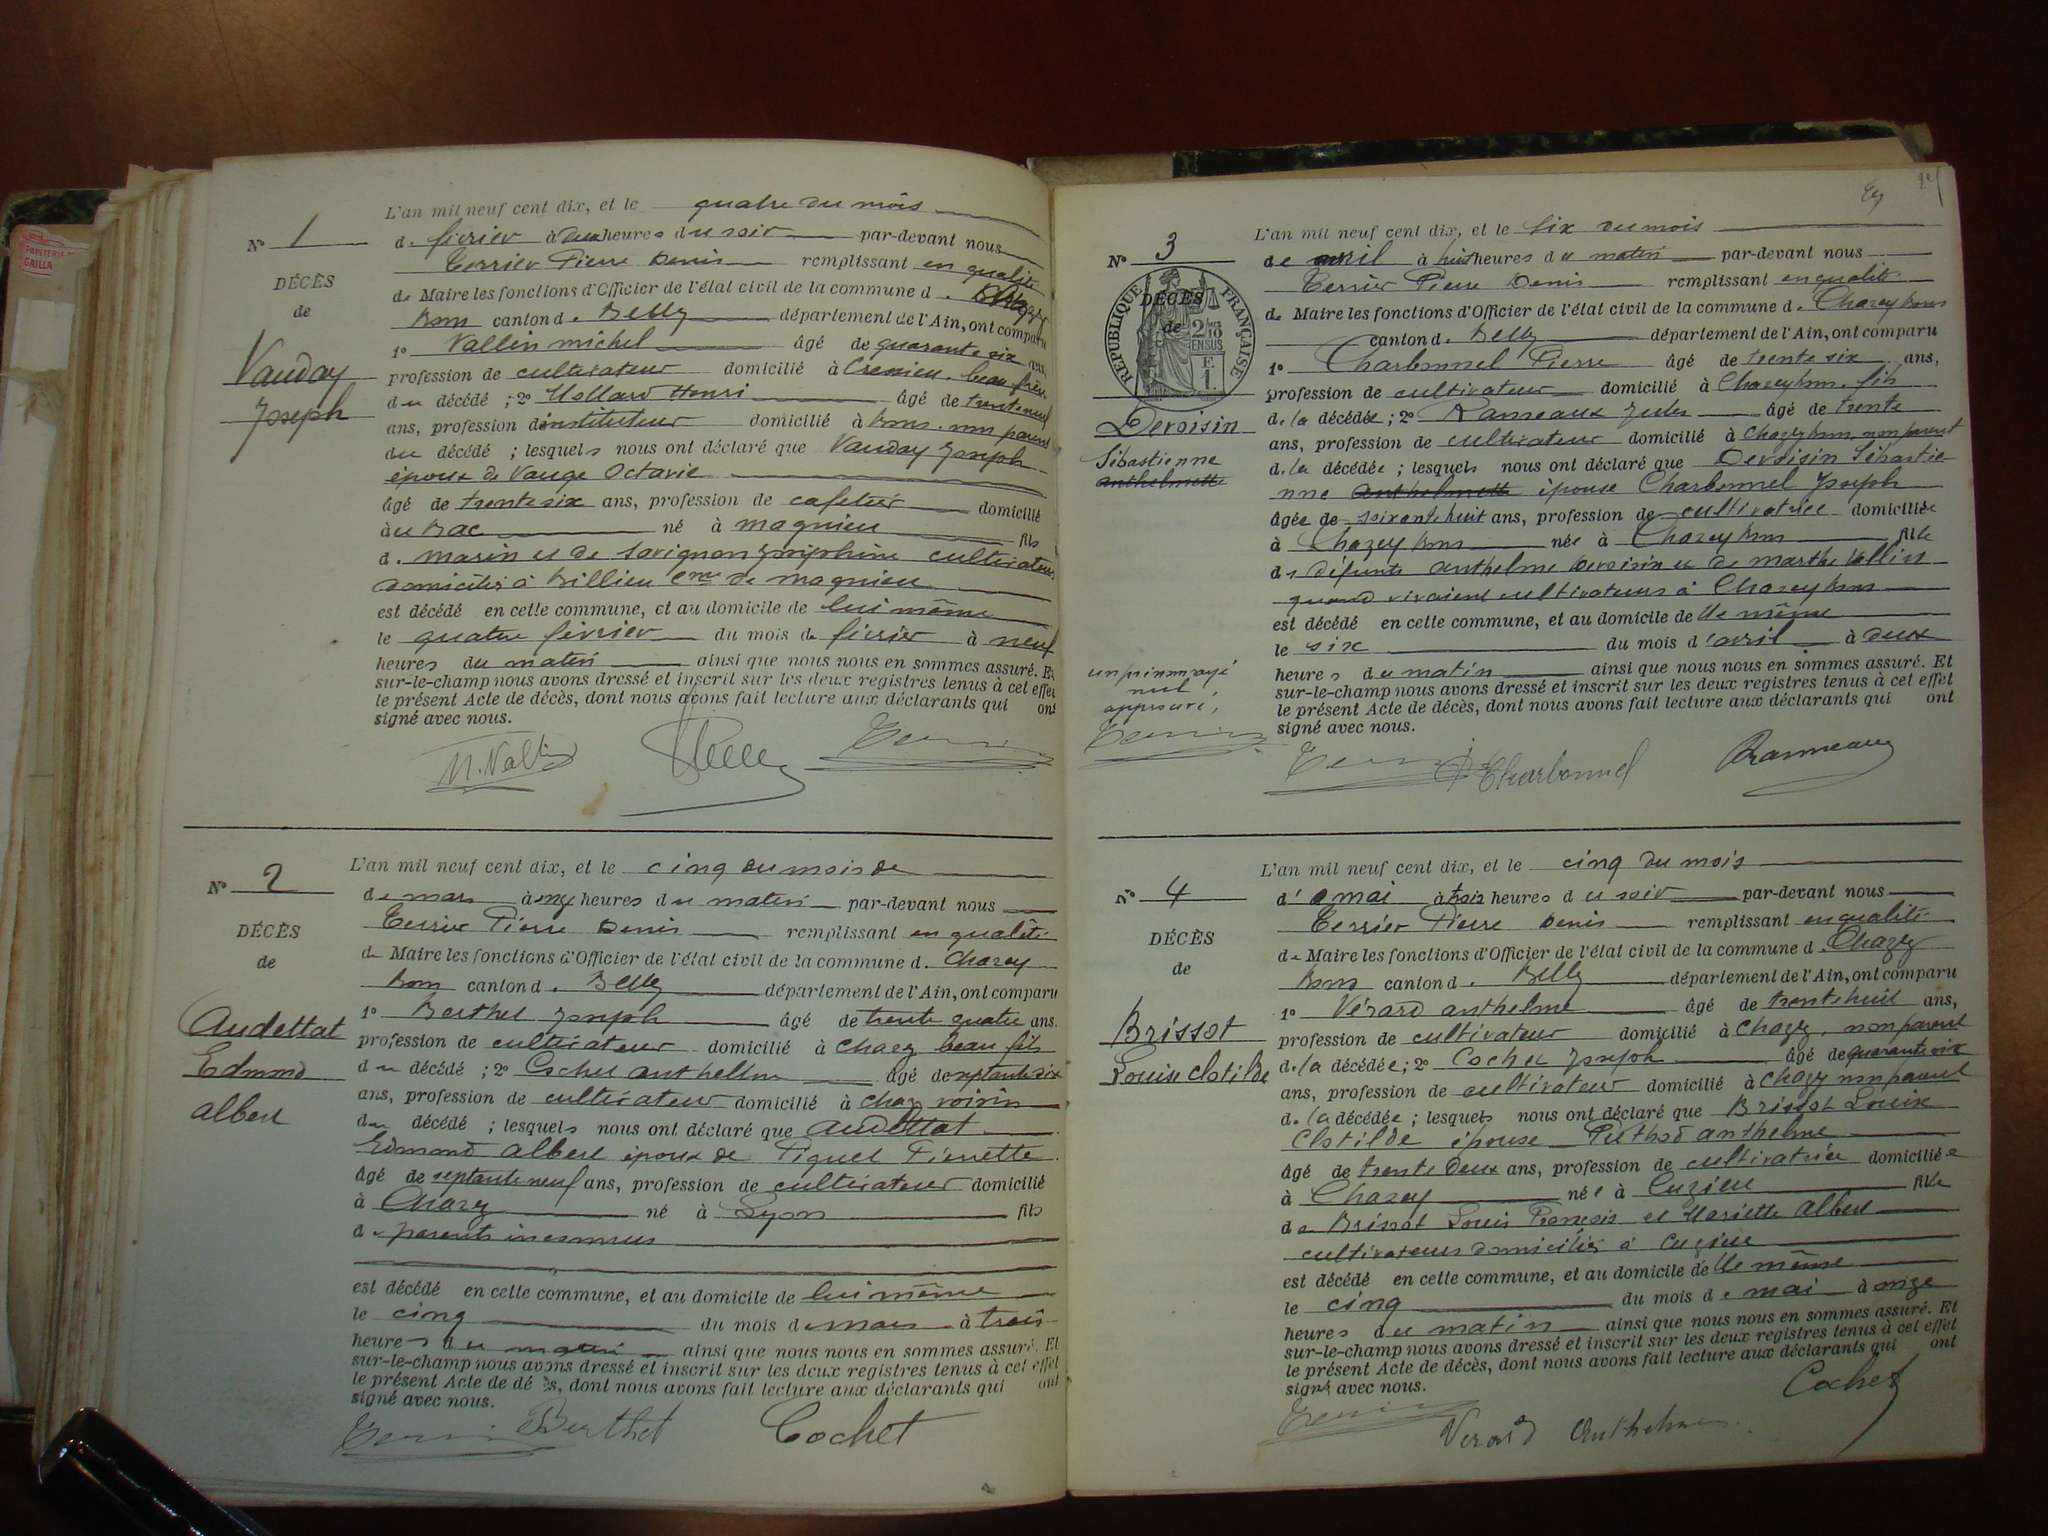 PAPETERIE
GAILLA
L'an mil neuf cent dix, et le quatre du mois
N° 1
de février à deux heures du soir par-devant nous
Terrier Pierre Denis remplissant en qualité
DÉCÈS
de Maire les fonctions d'Officier de l'état civil de la commune d. Chazey
de
Bons canton d. Belley département de l'Ain, ont comparu
1° Vallin michel âgé de quarante six ans,
Vauday
profession de cultivateur domicilié à Cressieu, beau frère
du décédé ; 2° Hollard Henri âgé de trente neuf
Joseph
ans, profession d'instituteur domicilié à Bons, non parent
du décédé ; lesquels nous ont déclaré que Vauday Joseph
époux de Vauge Octavie
âgé de trente six ans, profession de cafetier domicilié
au Bac né à magnieu fils
d. marin et de Savignon Joséphine cultivateurs
domiciliés à Billieu Cne de magnieu
est décédé en cette commune, et au domicile de lui même
le quatre février du mois de février à neuf
heures du matin ainsi que nous nous en sommes assuré. Et
sur-le-champ nous avons dressé et inscrit sur les deux registres tenus à cet effet
le présent Acte de décès, dont nous avons fait lecture aux déclarants qui ont
signé avec nous.
M. Vallin
Terrier
L'an mil neuf cent dix, et le cinq du mois de
N° 2
de mars à onze heures du matin par-devant nous
Terrier Pierre Denis remplissant en qualité
DÉCÈS
de Maire les fonctions d'Officier de l'état civil de la commune d. Chazey
de
Bons canton d. Belley département de l'Ain, ont comparu
1° Berthet Joseph âgé de trente quatre ans.
Audettat
profession de cultivateur domicilié à Chazey beau fils
Edmond
du décédé ; 2° Cochet anthelme âgé de septante six
ans, profession de cultivateur domicilié à Chaz voisin
albert
du décédé ; lesquels nous ont déclaré que Audettat
Edmond Albert époux de Piquet Pierrette
âgé de septante neuf ans, profession de cultivateur domicilié
à Chazey né à Lyon fils
de parents inconnus
est décédé en cette commune, et au domicile de lui même
le cinq du mois de mars à trois
heures du matin ainsi que nous nous en sommes assuré. Et
sur-le-champ nous avons dressé et inscrit sur les deux registres tenus à cet effet
le présent Acte de décès, dont nous avons fait lecture aux déclarants qui ont
signé avec nous.
Terrier Berthet Cochet
L'an mil neuf cent dix, et le six du mois
N° 3
de avril à huit heures du matin par-devant nous
Terrier Pierre Denis remplissant en qualité
RÉPUBLIQUE FRANÇAISE
DÉCÈS
de
2/10 EN SUS
F. 1
de Maire les fonctions d'Officier de l'état civil de la commune d. Chazey Bons
canton d. Belley département de l'Ain, ont comparu
1° Charbonnel Pierre âgé de trente six ans,
profession de cultivateur domicilié à Chazey Bons, fils
Devoisin
de la décédée ; 2° Rameaux Jules âgé de trente
ans, profession de cultivateur domicilié à Chazey Bons, non parent
Sébastienne
de la décédée ; lesquels nous ont déclaré que Devoisin Sébastie
anthelmette
nne anthelmette épouse Charbonnel Joseph
âgée de soixante huit ans, profession de cultivatrice domiciliée
à Chazey Bons née à Chazey Bons fille
de défunts anthelme Devoisin et de marthe Vallin
quand vivaient cultivateurs à Chazey Bons
est décédé en cette commune, et au domicile de lle même
le six du mois d'avril à deux
un prénom rayé
nul
approuvé,
Terrier
heures du matin ainsi que nous nous en sommes assuré. Et
sur-le-champ nous avons dressé et inscrit sur les deux registres tenus à cet effet
le présent Acte de décès, dont nous avons fait lecture aux déclarants qui ont
signé avec nous.
Terrier P Charbonnel Rameaux
L'an mil neuf cent dix, et le cinq du mois
N° 4
d' mai à trois heures du soir par-devant nous
Terrier Pierre Denis remplissant en qualité
DÉCÈS
de Maire les fonctions d'Officier de l'état civil de la commune d. Chazey
de
Bons canton d. Belley département de l'Ain, ont comparu
1° Vérard anthelme âgé de trente huit ans,
Brissot
profession de cultivateur domicilié à Chazey, non parent
Louise Clotilde
de la décédée ; 2° Cochet Joseph âgé de quarante six
ans, profession de cultivateur domicilié à Chazey non parent
de la décédée ; lesquels nous ont déclaré que Brissot Louise
Clotilde épouse Puthod anthelme
âgé de trente deux ans, profession de cultivatrice domiciliée
à Chazey née à Cuzieu fille
de Brissot Louis François et Mariette Albert
cultivateurs domiciliés à Cuzieu
est décédé en cette commune, et au domicile de lle même
le cinq du mois de mai à onze
heures du matin ainsi que nous nous en sommes assuré. Et
sur-le-champ nous avons dressé et inscrit sur les deux registres tenus à cet effet
le présent Acte de décès, dont nous avons fait lecture aux déclarants qui ont
signé avec nous.
Cochet
Terrier Verard Anthelme